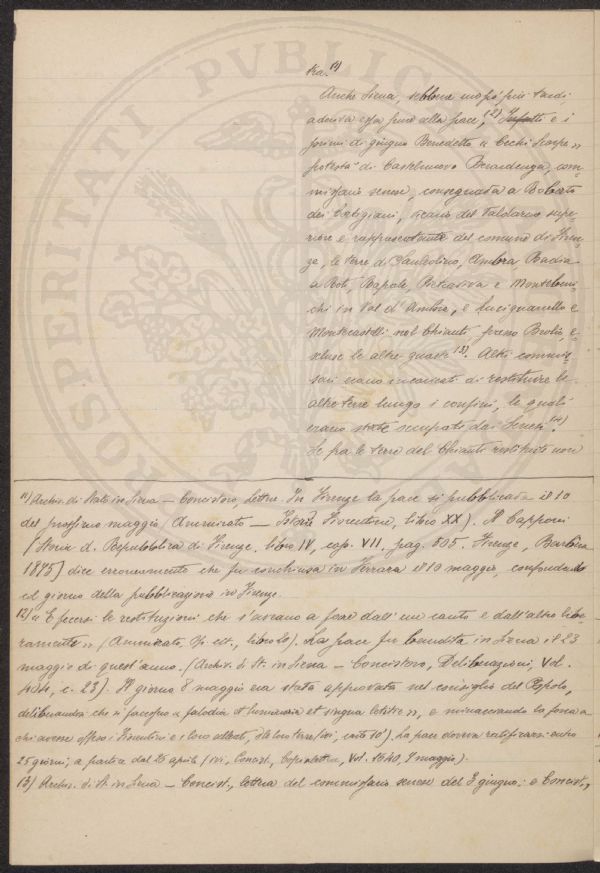 PROSPERITATI PVBLICAE
tra. (1)
Anche Siena, sebbene un po' più tardi,
aderiva essa pure alla pace, (2) Infatti e i
primi di giugno Benedetto di Cecchi
potestà di Castelnuovo Berardenga, com-
missario senese, consegnava a Roberto
dei vicario del Valdarno supe-
riore e rappresentante del comune di Firen-
ze, le terre di Sanleolino, Ambra, Badia
a Ruoti, Rapale, e Monteluci-
chi in Val d'Ambra, e Lucignanello e
Montecastelli nel Chianti presso Brolio, e-
scluse le altre quattro (3). Altri commis-
sari erano incaricati di restituire le
altre terre lungo i confini, le quali
erano state occupate dai Senesi. (4)
Se fra le terre del Chianti restituite non
(1) Archiv. di Stato in Siena — Concistoro, Lettere. In Firenze la pace si pubblicava il 10
del prossimo maggio (Ammirato — Istorie Fiorentine, libro XX). Il Capponi
(Storia d. Repubblica di Firenze, libro IV, cap. VII, pag. 505, Firenze, Barbèra
1875) dice erroneamente che fu conchiusa in Ferrara il 10 maggio, confondendo
col giorno della pubblicazione in Firenze.
(2) « E fecersi le restituzioni che s'aveano a fare dall'un canto e dall'altro libe-
ramente » (Ammirato, Op. cit., libro 20). La pace fu bandita in Siena il 23
maggio di quest'anno. (Archiv. di St. in Siena — Concistoro, Deliberazioni, Vol.
404, c. 23). Il giorno 8 maggio era stata approvata nel consiglio del Popolo,
deliberandosi che si facessero falodia et luminaria et singna letitie », e minacciando la forca a
chi avesse offeso i Fiorentini e i loro alleati, o le loro terre (ivi, carte 10). La pace doveva ratificarsi entro
25 giorni, a partire dal 26 aprile (ivi, Concist., Copialettere, Vol. 1640, 7 maggio).
(3) Archiv. di St. in Siena — Concist., lettera del commissario senese del 3 giugno: e Concist.,